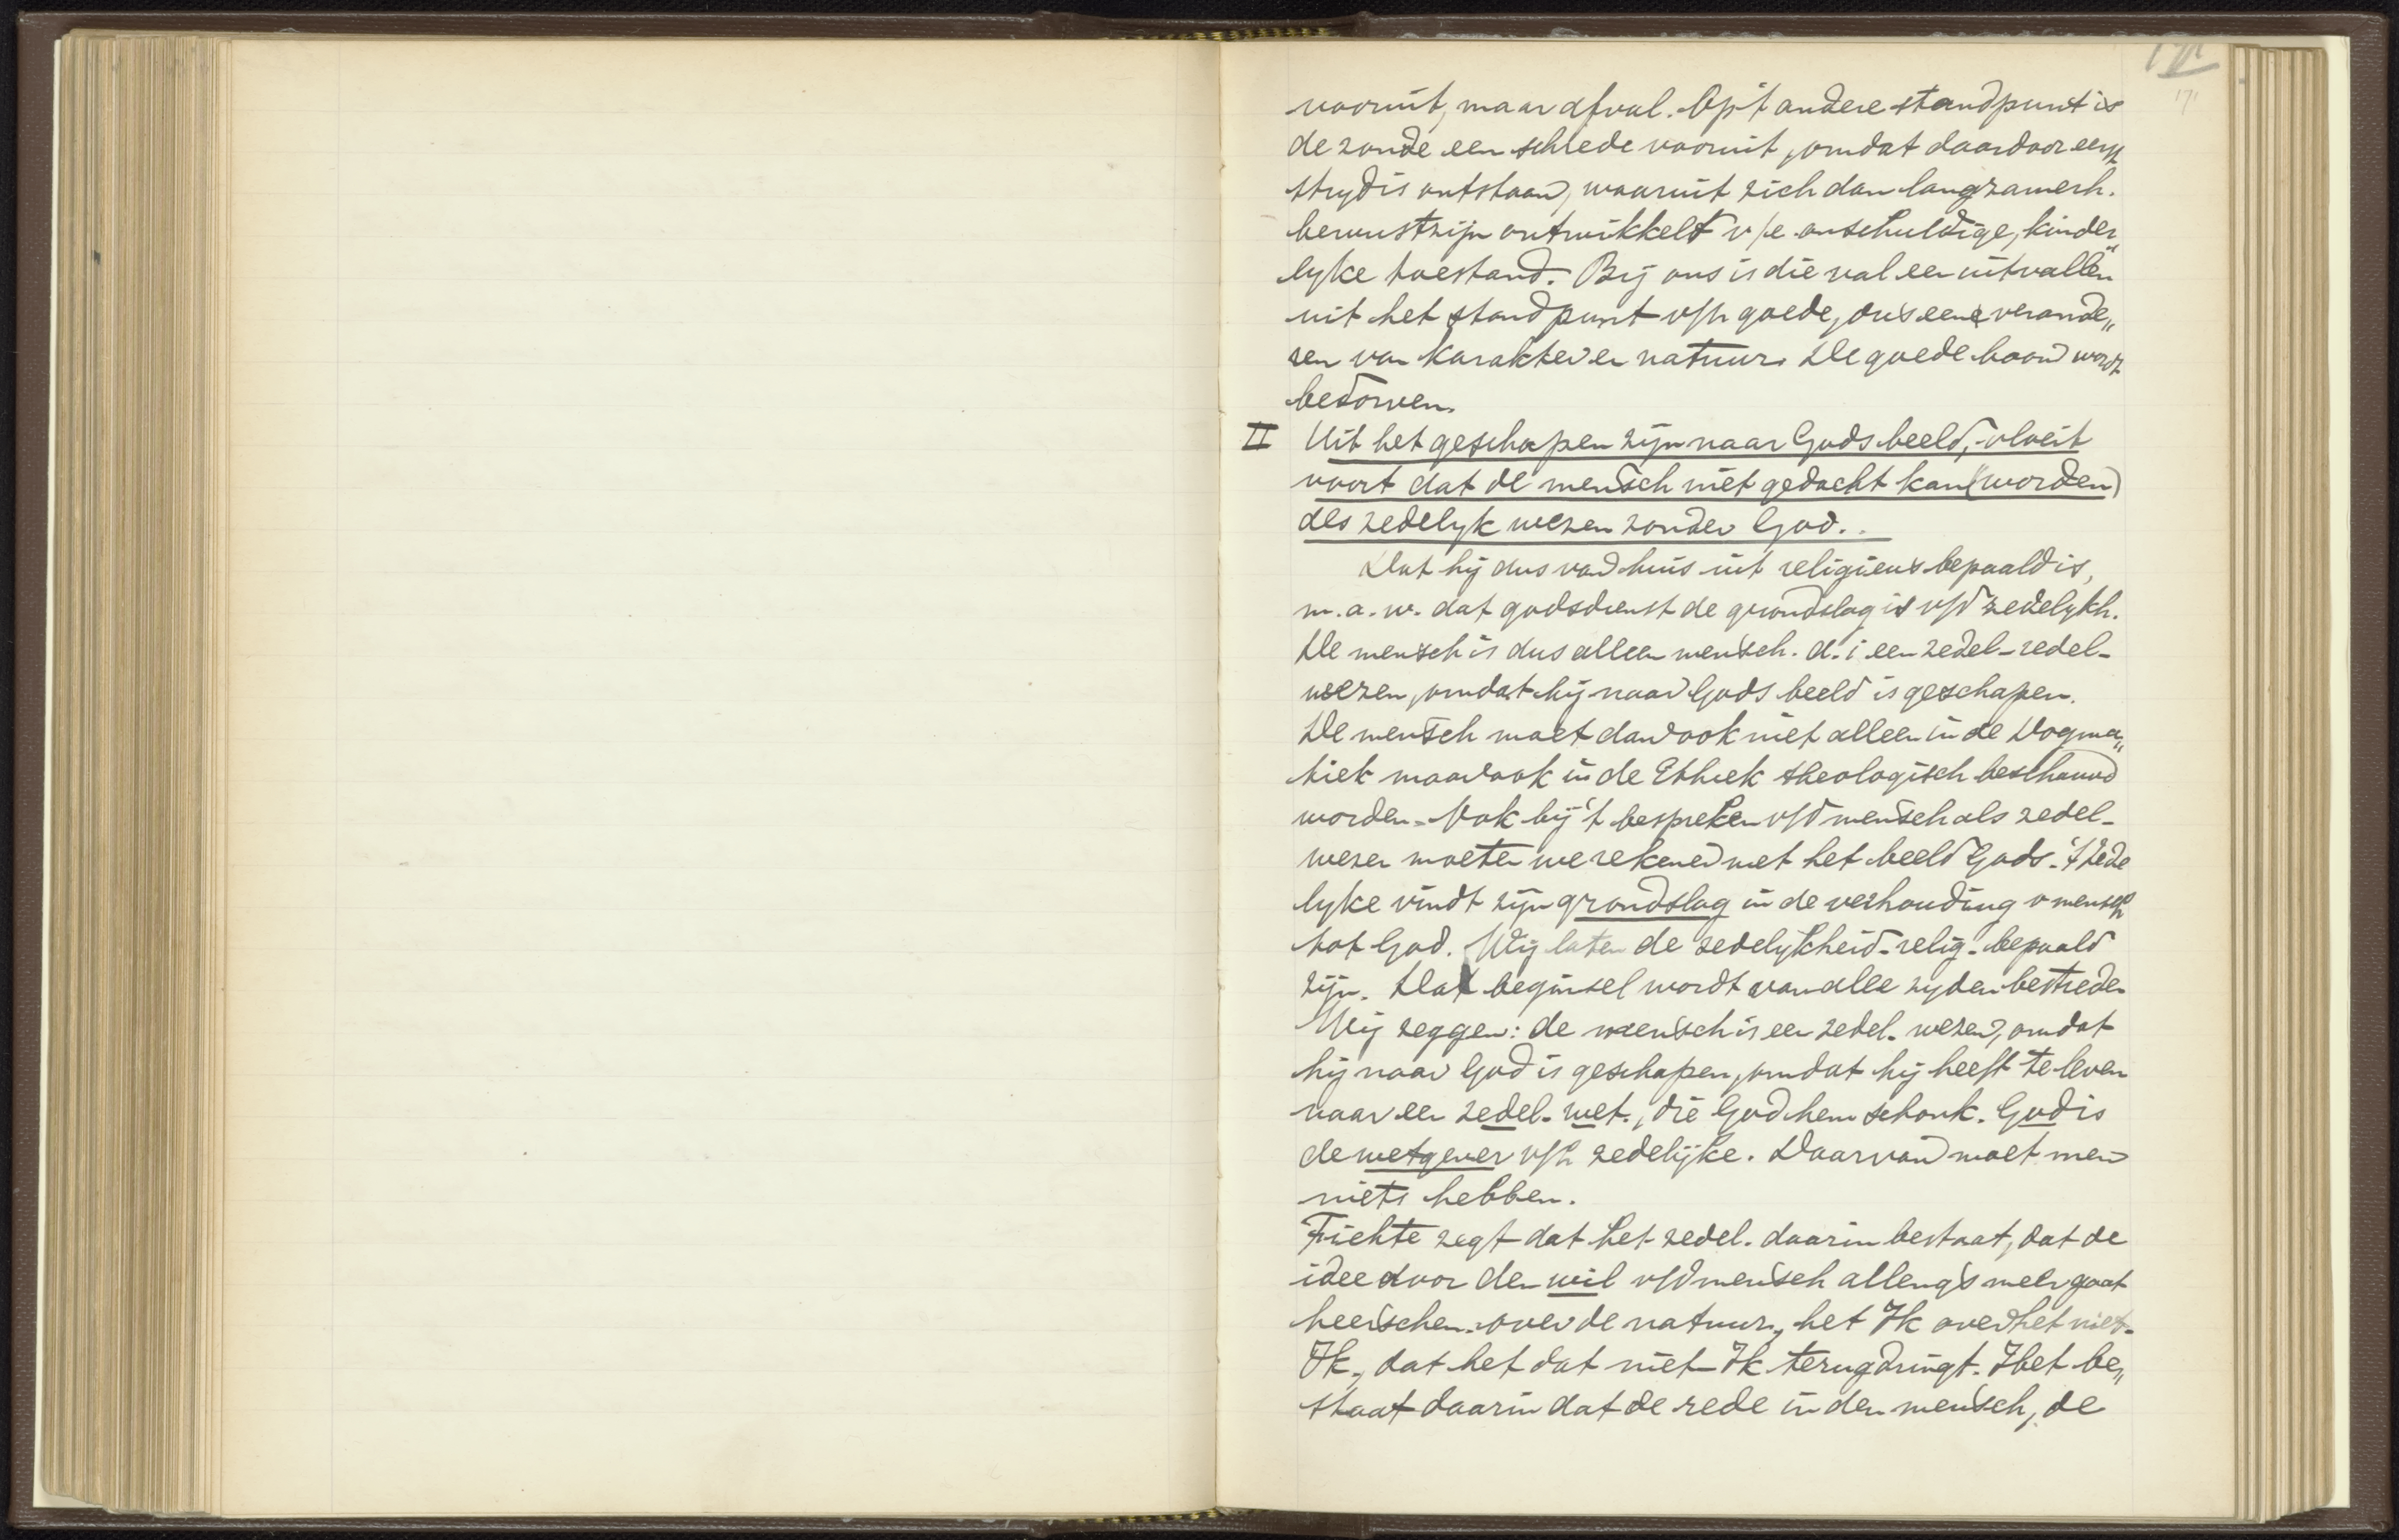 171
171
vooruit, maar afval. Op 't andere standpunt is
de zonde een schrede vooruit, omdat daardoor eerst
strijd is ontstaan, waaruit zich dan langzamerh.
bewustzijn ontwikkelt v/e onschuldige, kinder„
lyke toestand. Bij ons is die val een uitvallen
uit het standpunt v/h goede, dus eene verande„
ren van karakter en natuur. De goede boom wordt
bedorven.
II Uit het geschapen zijn naar Gods beeld, vloeit
voort dat de mensch niet gedacht kan (worden)
als zedelyk wezen zonder God.
Dat hij dus van huis uit religieus bepaald is,
m.a.w. dat godsdienst de grondslag is v/d zedelykh.
De mensch is dus alleen mensch. d.i een zedel-redel-
wezen, omdat hij naar Gods beeld is geschapen.
De mensch moet dan ook niet alleen in de Dogma„
tiek maar ook in de Ethiek theologisch beschouwd
worden. Ook bij 't bespreken v/d mensch als zedel-
wezen moeten we rekenen met het beeld Gods. 't Zede
lyke vindt zijn grondslag in de verhouding v mensch
tot God. Wij laten de zedelykheid-relig- bepaald
zijn. Dat beginsel wordt van alle zyden bestreden
Wij zeggen: de mensch is een zedel. wezen, omdat
hij naar God is geschapen, omdat hij heeft te leven
naar een zedel. wet., die God hem schonk. God is
de wetgever v/h zedelijke. Daarvan moet men
niets hebben.
Fichte zegt dat het zedel. daarin bestaat, dat de
idee door den wil v/d mensch allengs meer gaat
heerschen over de natuur, het Ik over het niet-
Ik, dat het dat niet-Ik terugdringt. Het be„
staat daarin dat de rede in den mensch, de